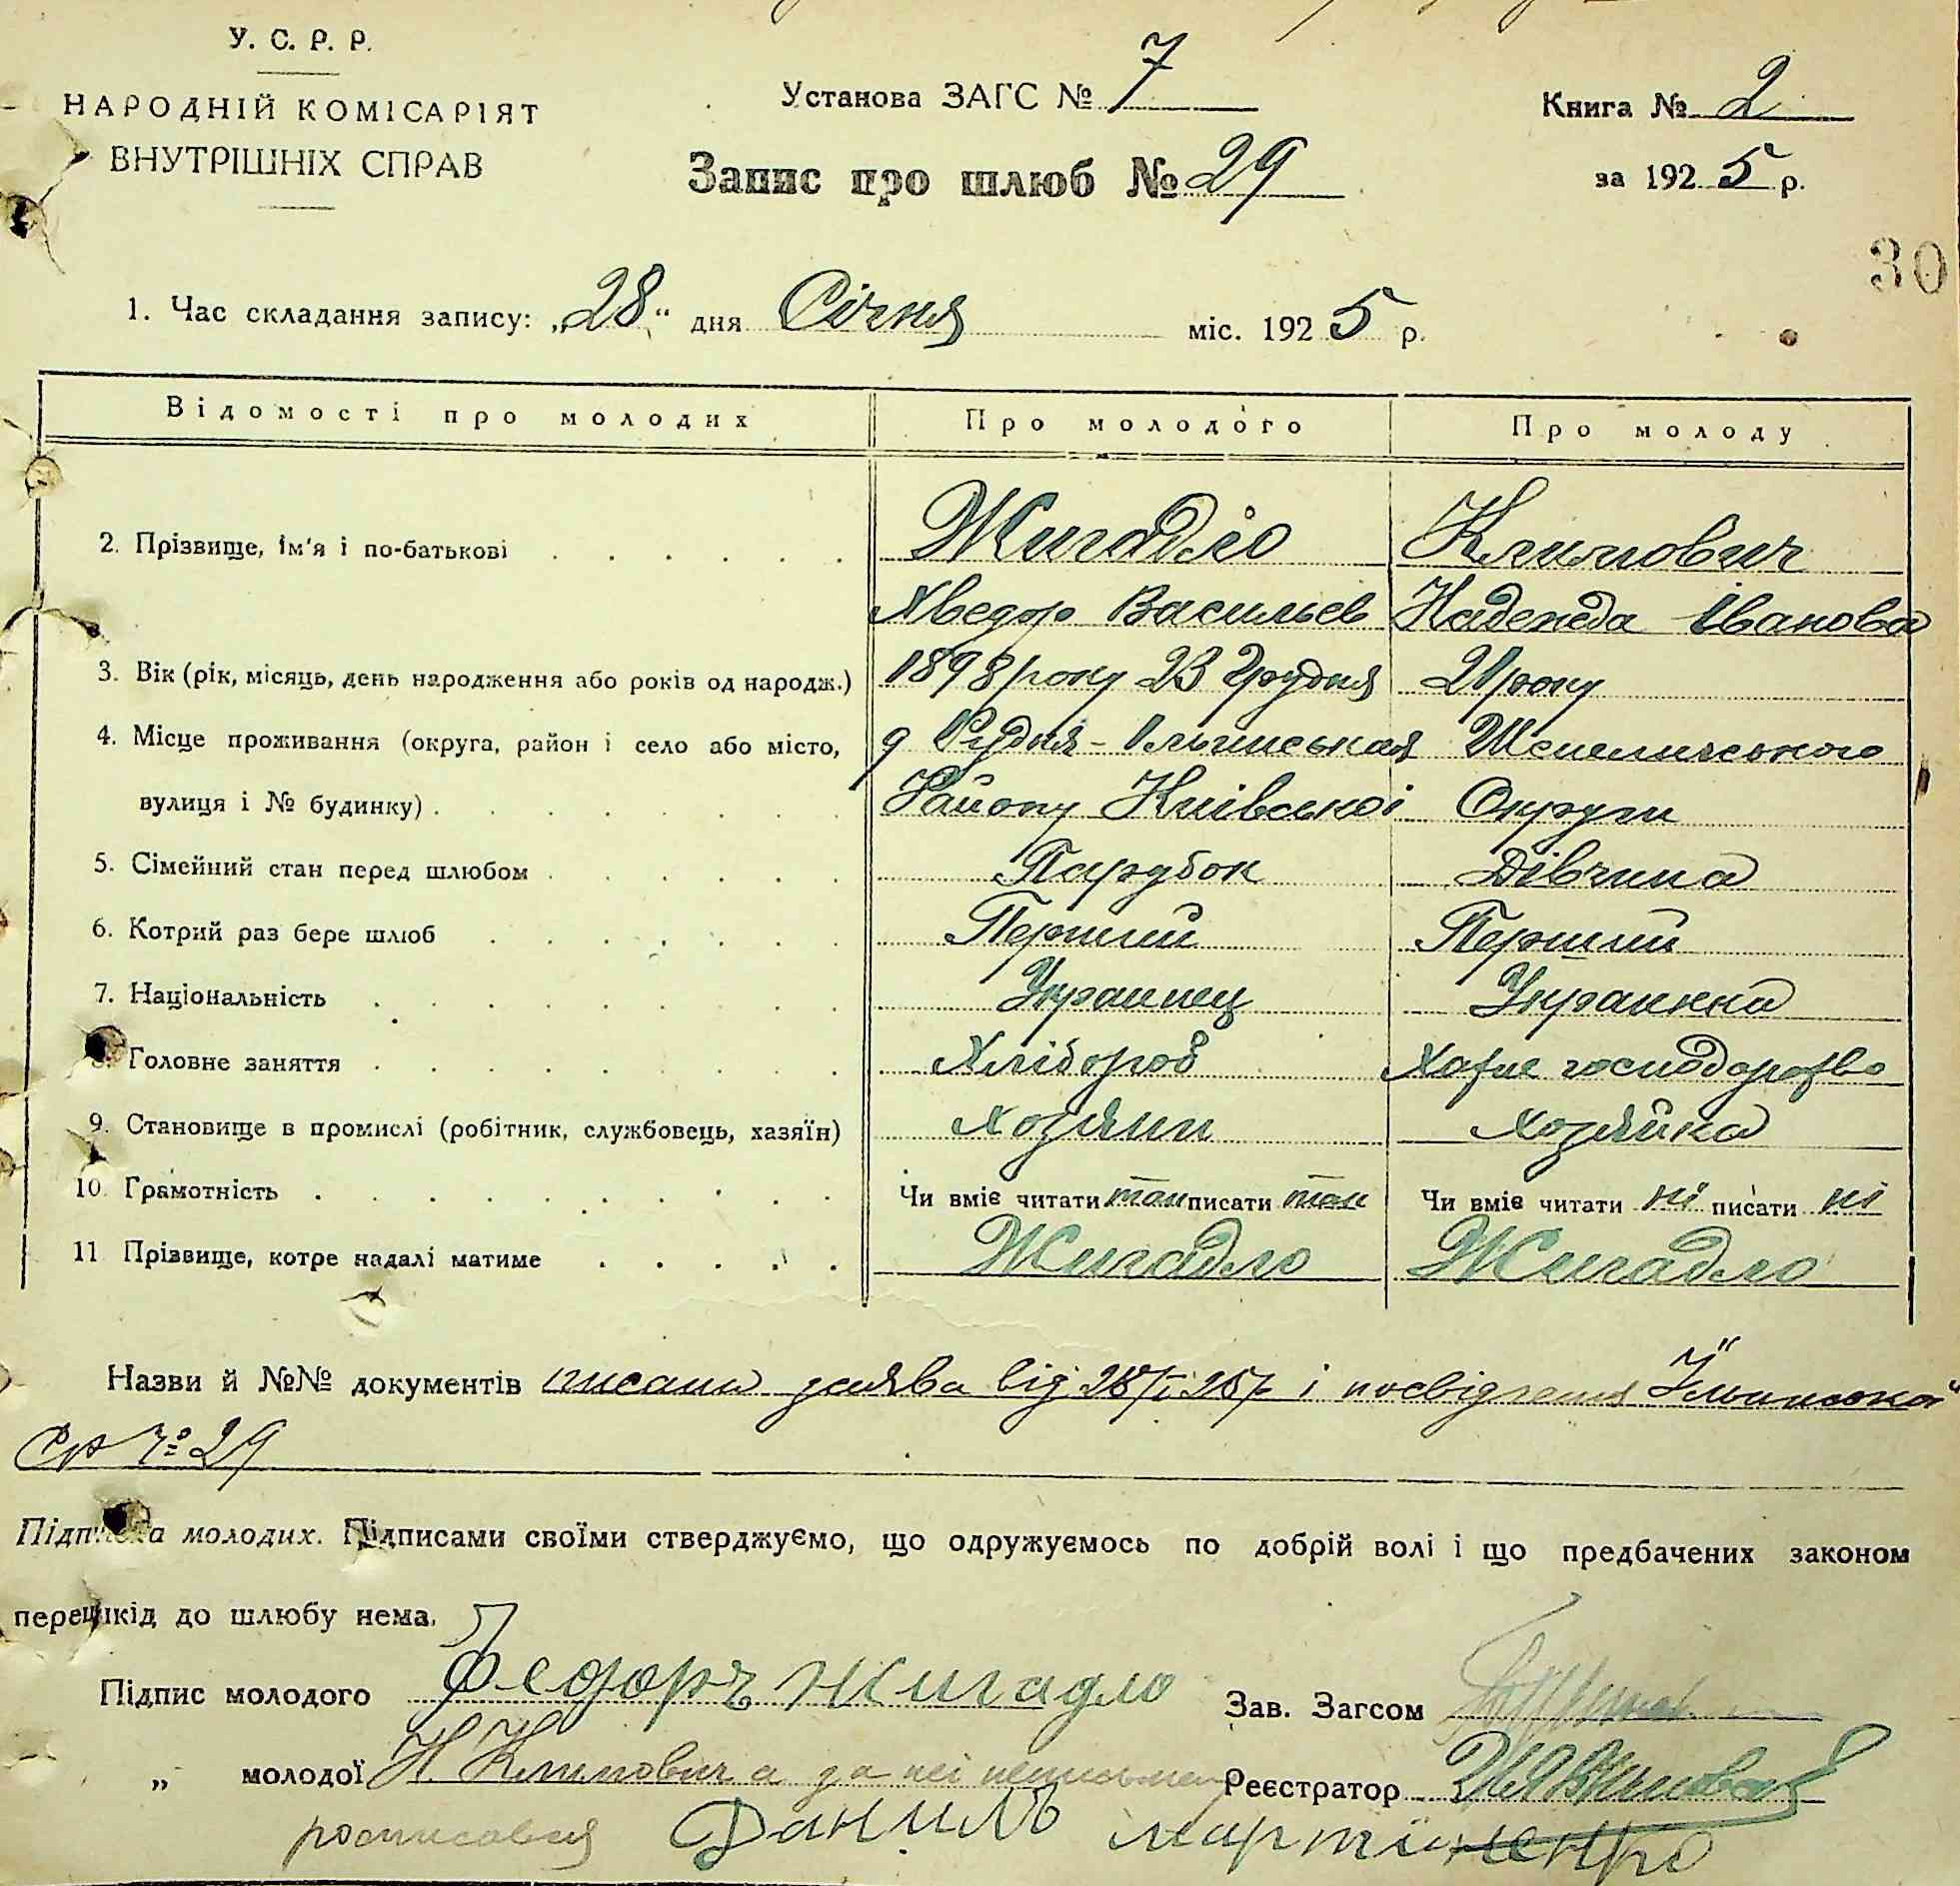 У. С. Р. Р.
НАРОДНІЙ КОМІСАРІЯТ
ВНУТРІШНІХ СПРАВ
Установа ЗАГС № 7
Запис про шлюб № 29
Книга № 2
за 1925 р.
30
1. Час складання запису: „28“ дня Січня міс. 1925 р.
Відомості про молодих Про молодого Про молоду
2. Прізвище, ім'я і по-батькові Жигадло Климович
Хведор Васильев Надежда Іванова
3. Вік (рік, місяць, день народження або років од народж.) 1898 року 23 Грудня 21 року
4. Місце проживання (округа, район і село або місто, Рудня-Ільинськая Шепелического
вулиця і № будинку) Району Київської Округи
5. Сімейний стан перед шлюбом Парубок Дівчина
6. Котрий раз бере шлюб Перший Перший
7. Національність Украинец Украинка
8. Головне заняття Хлібороб Хатне господарство
9. Становище в промислі (робітник, службовець, хазяїн) Хозяин Хозяйка
10. Грамотність Чи вміє читати так писати так Чи вміє читати ні писати ні
11 Прізвище, котре надалі матиме Жигадло Жигадло
Назви й №№ документів заява від 28/I 25р і посвідчення
№ 29
Підписка молодих. Підписами своїми стверджуємо, що одружуємось по добрій волі і що предбачених законом
перешкід до шлюбу нема.
Підпис молодого Федоръ Жигадло Зав. Загсом
„ молодої Н. Климович а за неі Реєстратор
росписався Данилъ Мартиненко